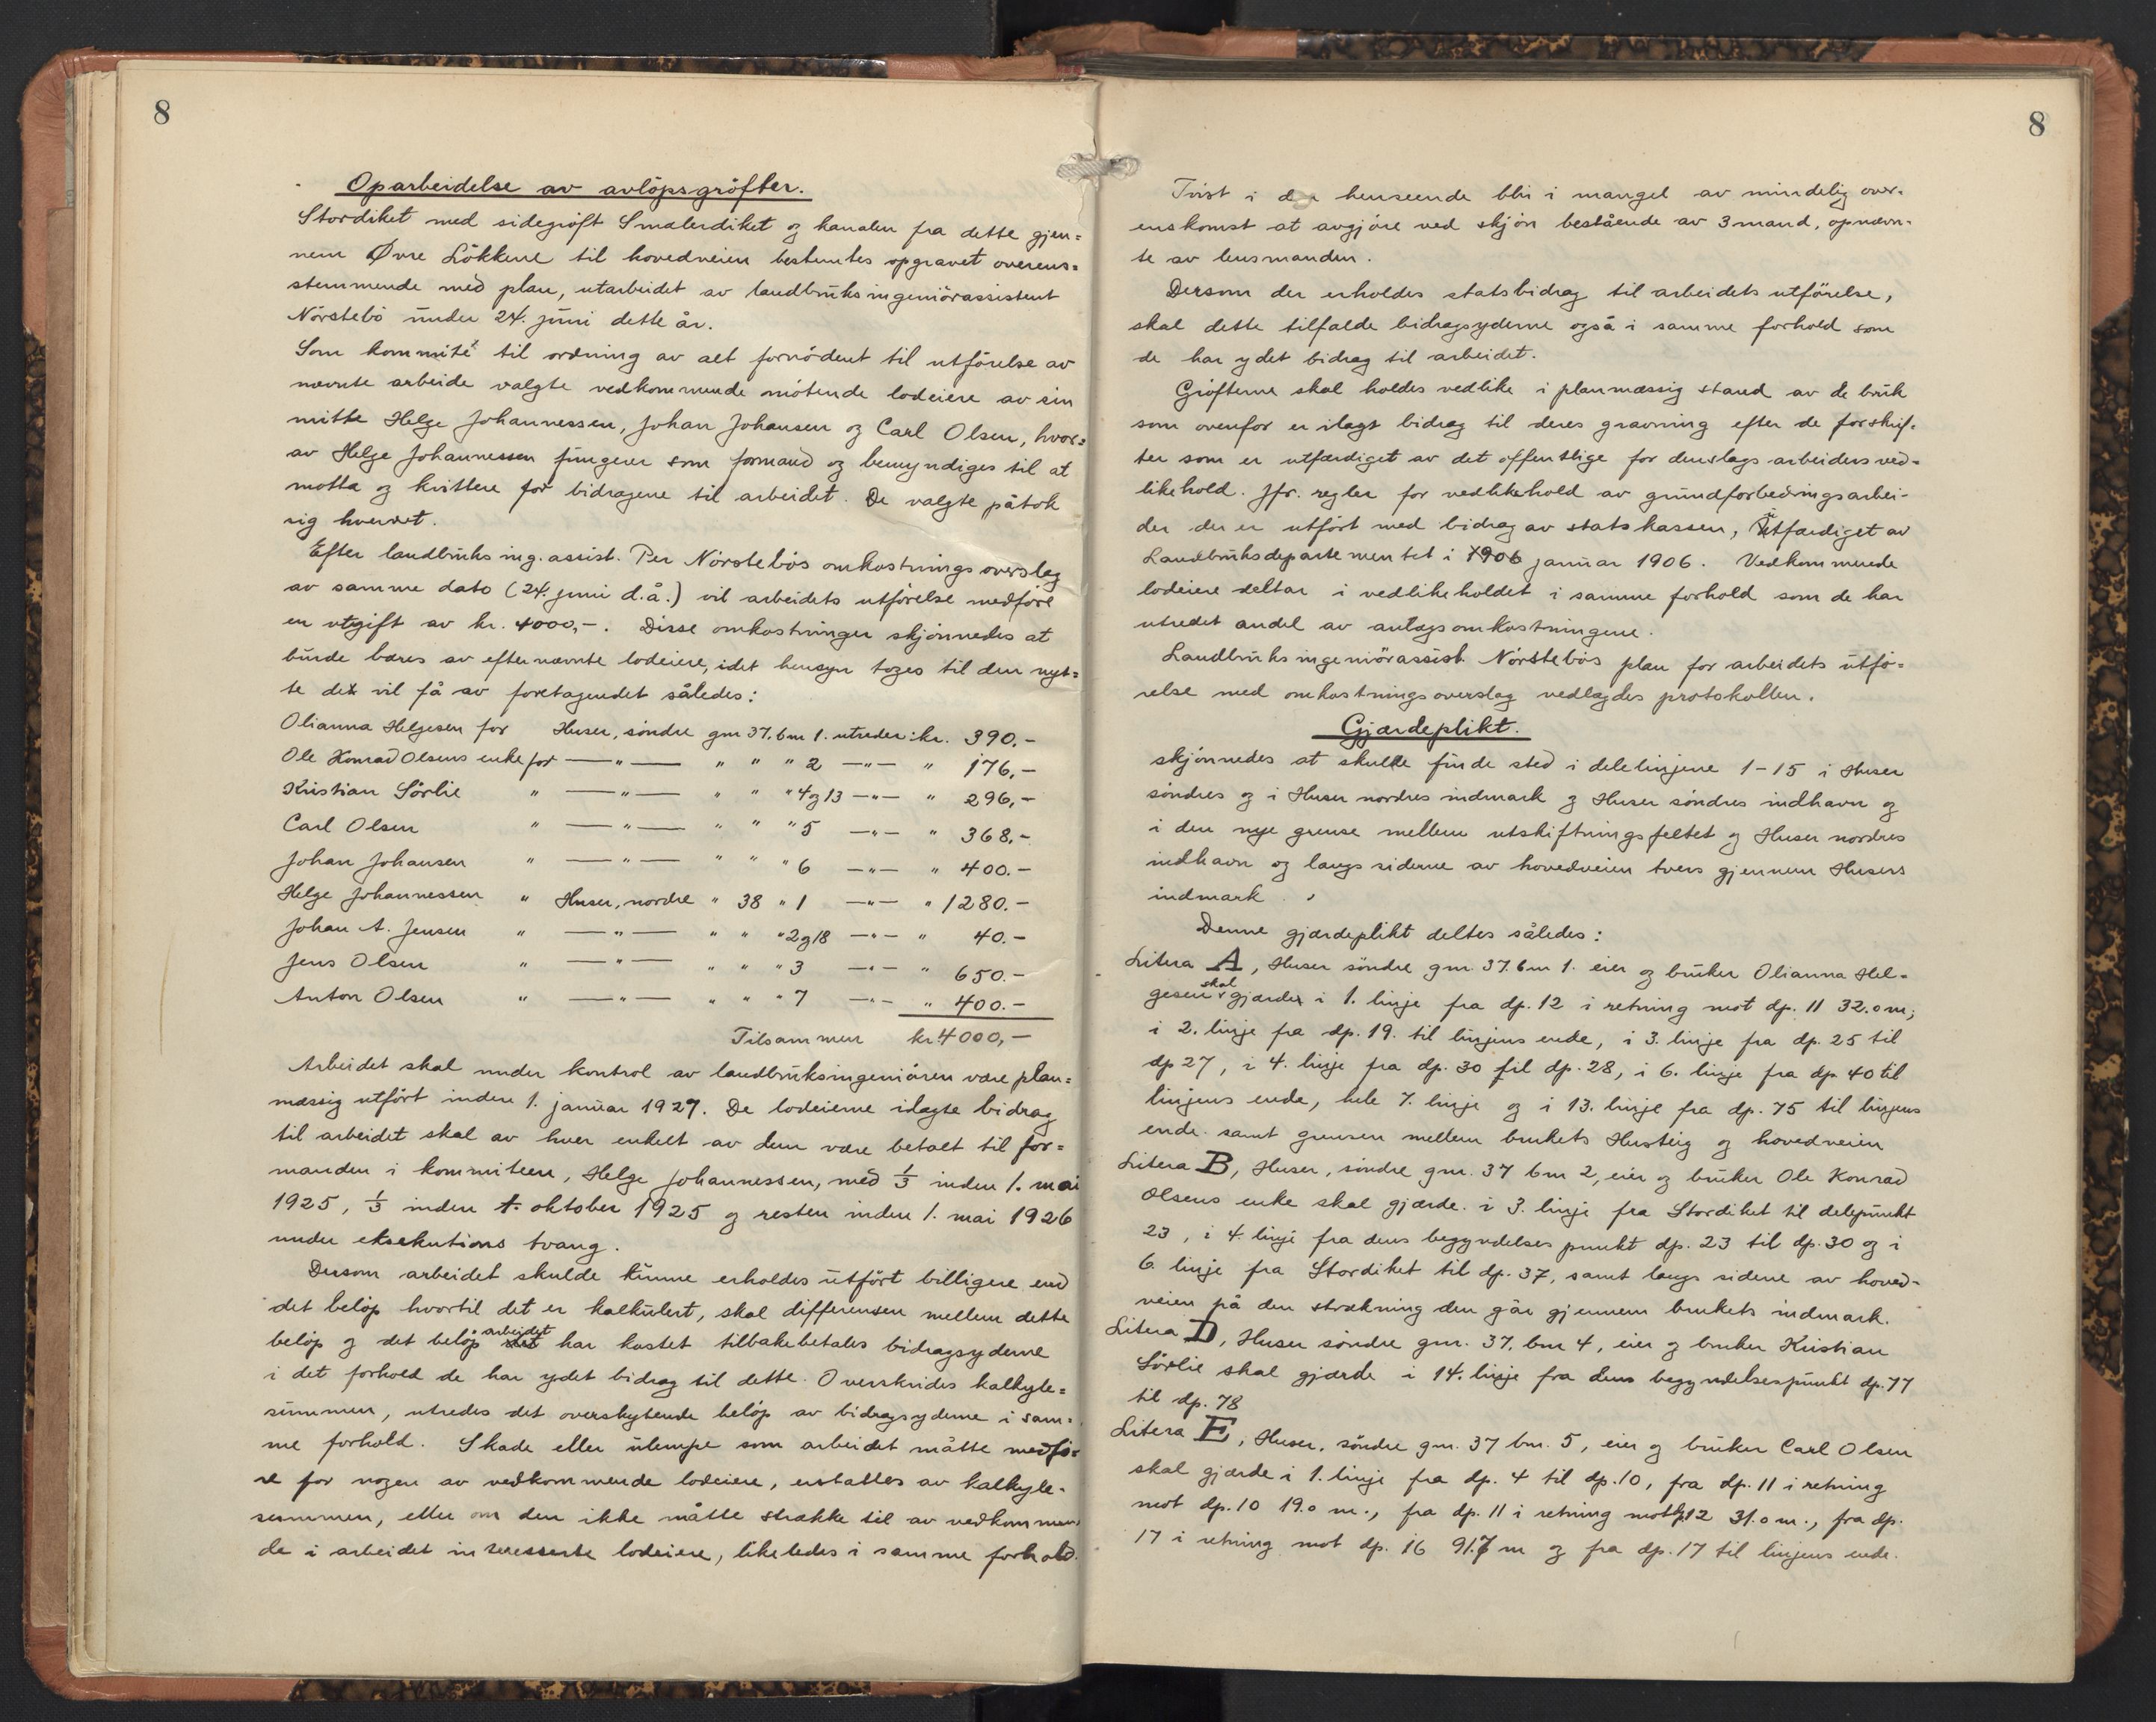 8
Oparbeidelse av avlöpsgröfter.
Stordiket med sidegröft Smalerdiket og kanalen fra dette gjen=
nem Øvre Lökkene til hovedveien bestemtes opgravet overens=
stemmende med plan, utarbeidet av landbruksingeniörassistent
Nörstebö under 24. juni dette år.
Som kommité til ordning av alt fornödent til utförelse av
nævnte arbeide valgte vedkommende mötende lodeiere av sin
mitte Helge Johannessen, Johan Johansen og Carl Olsen, hvor=
av Helge Johannessen fungerer som formand og bemyndiges til at
motta og kvittere for bidragene til arbeidet. De valgte påtok
sig hvervet.
Efter landbruks ing. assist. Per Nörstebös omkostningsoverslag
av samme dato (24. juni d.å.) vil arbeidets utförelse medföre
en utgift av kr. 4000,-. Disse omkostninger skjönnedes at
burde bæres av efternævnte lodeiere, idet hensyn toges til den nyt=
te de vil få av foretagendet således:
Olianna Helgesen for Huser, söndre gm 37. bm 1. utreder: kr. 390.-
Ole Konrad Olsens enke for —"— " " " 2 —"— " 176,-
Kristian Sörlie " —"— " " " 4 og 13 —"— " 296,-
Carl Olsen " —"— " " " 5 —"— " 368,-
Johan Johansen " —"— " " " 6 —"— " 400.-
Helge Johannessen " Huser, nordre " 38 " 1 —"— " 1280.-
Johan A. Jensen " —"— " " " 2 og 18 —"— " 40.-
Jens Olsen " —"— " " " 3 —"— " 650.-
Anton Olsen " —"— " " " 7 —"— " 400.-
Tilsammen kr. 4000,-
Arbeidet skal under kontrol av landbruksingeniören være plan=
mæssig utfört inden 1. januar 1927. De lodeierne ilagte bidrag
til arbeidet skal av hver enkelt av dem være betalt til for=
manden i kommiteen, Helge Johannessen, med 1/3 inden 1. mai
1925, 1/3 inden 1. oktober 1925 og resten inden 1. mai 1926
under eksekutions tvang.
Dersom arbeidet skulde kunne erholdes utfört billigere end
det belöp hvortil det er kalkulert, skal differensen mellem dette
belöp og det belöp arbeidet har kostet tilbakebetales bidragsyderne
i det forhold de har ydet bidrag til dette. Overskrides kalkyle=
summen, utredes det overskytende belöp av bidragsyderne i sam=
me forhold. Skade eller ulempe som arbeidet måtte medfö=
re for nogen av vedkommende lodeiere, erstattes av kalkyle-
summen, eller om den ikke måtte strække til av vedkommen
de i arbeidet interesserte lodeiere, likeledes i samme forhold.
8
Tvist i henseende blir i mangel av mindelig over-
enskomst at avgjöre ved skjön bestående av 3 mand, opnævn-
te av lensmanden.
Dersom der erholdes statsbidrag til arbeidets utförelse,
skal dette tilfalde bidragsyderne også i samme forhold som
de har ydet bidrag til arbeidet.
Gröfterne skal holdes vedlike i planmæssig stand av de bruk
som ovenfor er ilagt bidrag til deres gravning efter de forskrif-
ter som er utfærdiget av det offentlige for denslags arbeiders ved-
likehold. Jfr. regler for vedlikehold av grundforbedringsarbei-
der der er utfört med bidrag av statskassen, utfærdiget av
Landbruksdepartementet i 1906 januar 1906. Vedkommende
lodeiere deltar i vedlikeholdet i samme forhold som de har
utredet andel av anlægsomkostningene.
Landbruksingeniörassist. Nörstebös plan for arbeidets utfö-
relse med omkostningsoverslag vedlægdes protokollen.
Gjærdeplikt.
skjönnedes at skulle finde sted i delelinjene 1-15 i Huser
söndres og i Huser nordres indmark og Huser söndres indhavn og
i den nye grense mellem utskiftningsfeltet og Huser nordres
indhavn og langs siderne av hovedveien tvers gjennem Husers
indmark.
Denne gjærdeplikt deltes således:
Litera A, Huser söndre gnr. 37. bm 1. eier og bruker Olianna Hel-
gesen skal gjærde i 1. linje fra dp. 12 i retning mot dp. 11 32.0 m;
i 2. linje fra dp. 19. til linjens ende, i 3. linje fra dp. 25 til
dp 27, i 4. linje fra dp. 30 til dp. 28, i 6. linje fra dp. 40 til
linjens ende, hele 7. linje og i 13. linje fra dp. 75 til linjens
ende. samt grensen mellem brukets Husteig og hovedveien
Litera B, Huser, söndre gnr. 37 bm 2, eier og bruker Ole Konrad
Olsens enke skal gjærde. i 3. linje fra Stordiket til delepunkt
23, i 4. linje fra dens begyndelses punkt dp. 23 til dp. 30 og i
6. linje fra Stordiket til dp. 37, samt langs siderne av hoved-
veien på den strækning den går gjennem brukets indmark.
Litera D, Huser söndre gnr. 37, bm 4, eier og bruker Kristian
Sörlie skal gjærde i 14. linje fra dens begyndelsespunkt dp. 77
til dp. 78
Litera E, Huser, söndre gnr. 37 bm. 5, eier og bruker Carl Olsen
skal gjærde i 1. linje fra dp. 4 til dp. 10, fra dp. 11 i retning
mot dp. 10 19.0 m., fra dp. 11 i retning mot dp. 12 31.0 m., fra dp.
17 i retning mot dp. 16 91.7 m og fra dp. 17 til linjens ende.